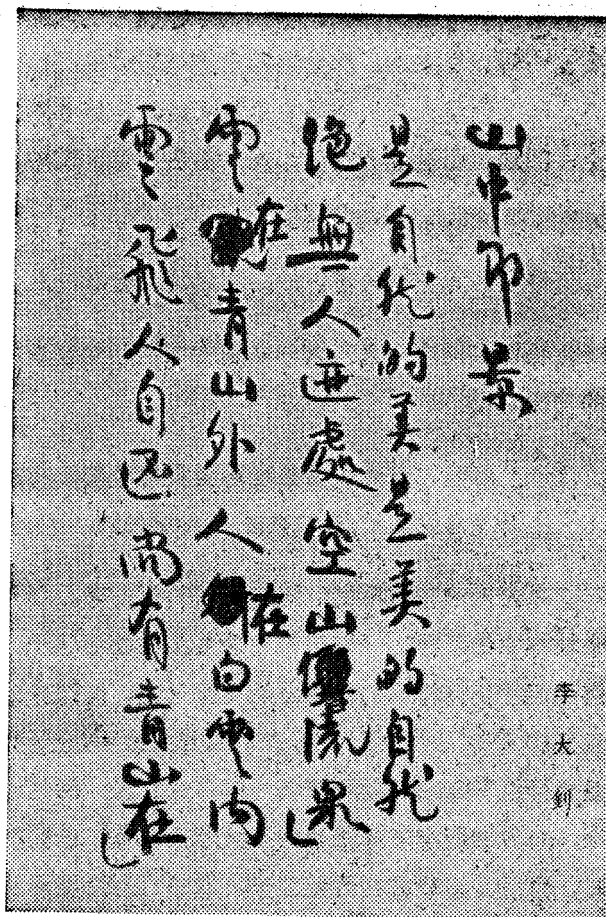 李大釗
山中即景
是自然的美是美的自然
絕無人迹處空山響流泉
雲在青山外人在白雲内
雲飛人自还尚有青山在